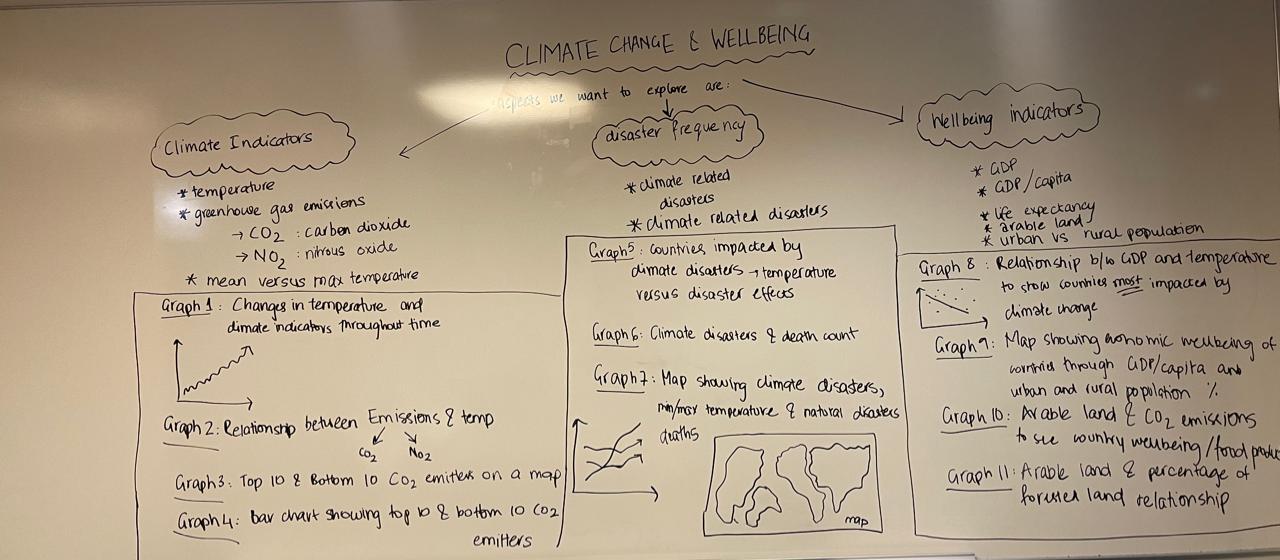 CLIMATE CHANGE & WELLBEING
aspects we want to explore are:
Climate Indicators
* temperature
* greenhouse gas emissions
→ CO2 : carbon dioxide
→ NO2 : nitrous oxide
* mean versus max temperature
Graph 1: Changes in temperature and
climate indicators throughout time
Graph 2: Relationship between Emissions & temp
CO2 NO2
Graph 3: Top 10 & Bottom 10 CO2 emitters on a map
Graph 4: bar chart showing top 10 & bottom 10 CO2
emitters
disaster frequency
* climate related
disasters
* climate related disasters
Graph 5: countries impacted by
climate disasters → temperature
versus disaster effects
Graph 6: Climate disasters & death count
Graph 7: Map showing climate disasters,
min/max temperature & natural disasters
deaths
map
Wellbeing indicators
* GDP
* GDP/capita
* life expectancy
* arable land
* urban vs rural population
Graph 8: Relationship b/w GDP and temperature
to show countries most impacted by
climate change
Graph 9: Map showing economic wellbeing of
countries through GDP/capita and
urban and rural population %
Graph 10: Arable land & CO2 emissions
to see country wellbeing/food produc
Graph 11: Arable land & percentage of
land relationship